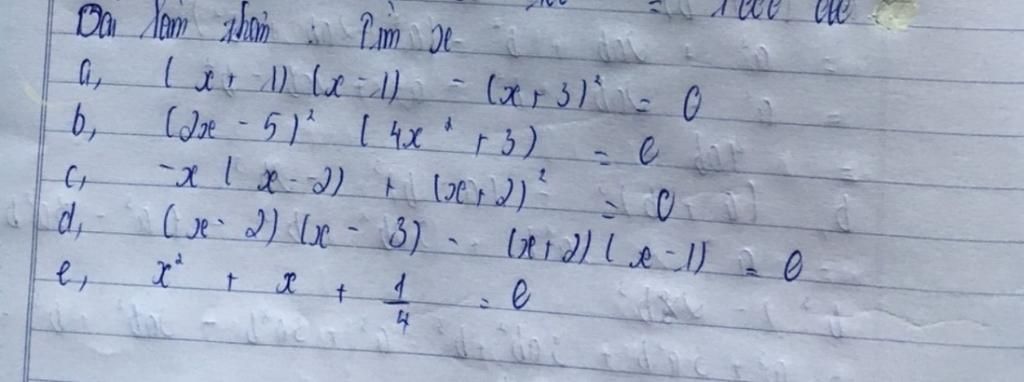 Bài làm thêm Tìm x
a, (x + 1) (x - 1) - (x + 3)² = 0
b, (2x - 5)² (4x² + 3) = 0
c, -x (x - 2) + (x + 2)² = 0
d, (x - 2) (x - 3) - (x + 2) (x - 1) = 0
e, x² + x + 1/4 = 0